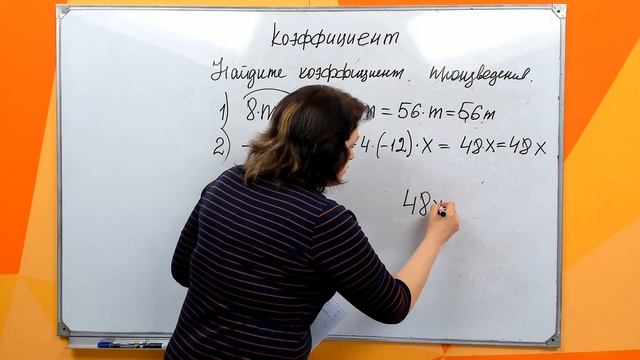 Коэффициент
Найдите коэффициент произведения.
1) 8·m m = 56·m = 56m
2) - 4·(-12)·x = 48x = 48x
48x